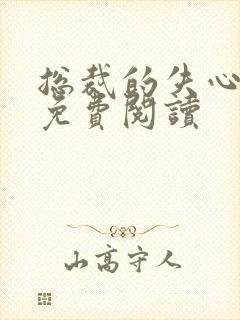 总裁的失心
免費閱讀
山高守人